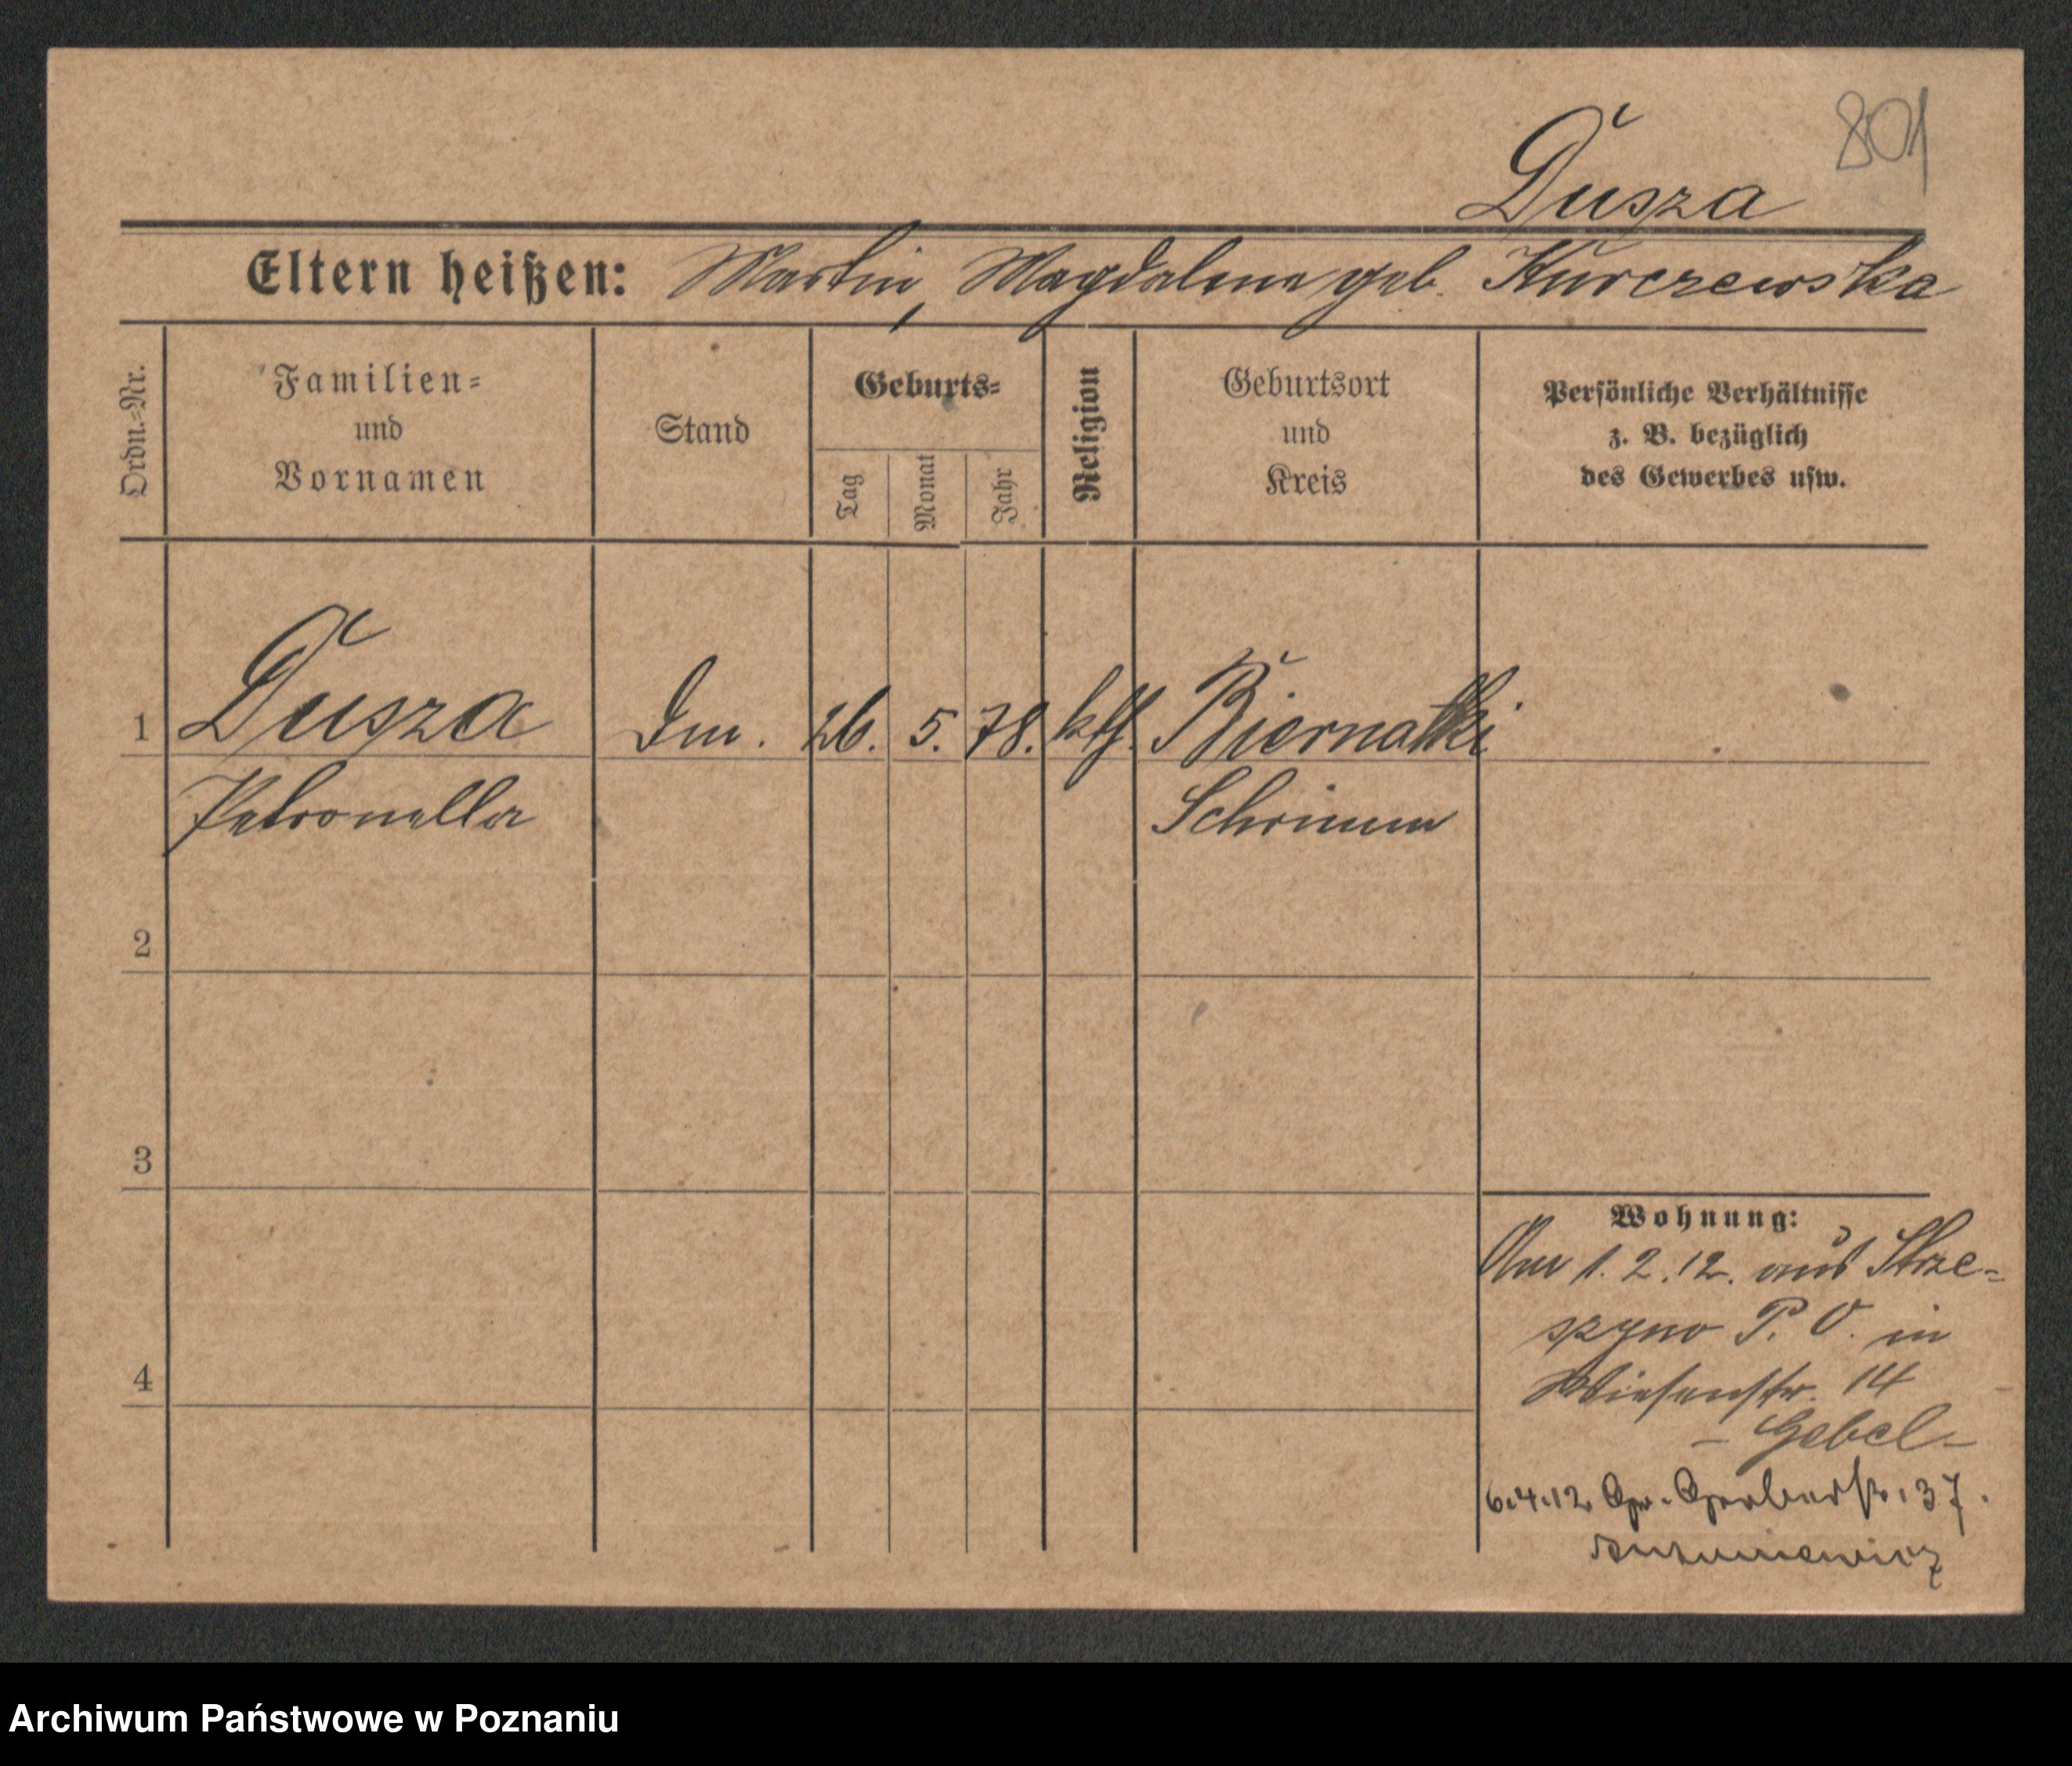 801
Dusza
Eltern heißen: Martin, Magdalena geb. Kurczewska
Ordn.-Nr.
Familien-
und
Vornamen
Stand
Geburts-
Tag
Monat
Jahr
Religion
Geburtsort
und
Kreis
Persönliche Verhältnisse
z. B. bezüglich
des Gewerbes usw.
1 Dusza 26. 5. 78. kth. Biernatki
Petronella Schrimm
2
3
4
Wohnung:
Am 1.2.12. aus Strze-
szyno P. O. in
Wiesenstr. 14
- Gebel -
6.4.12 Gr. Gerberstr. 37.
Antoniewicz
Archiwum Państwowe w Poznaniu